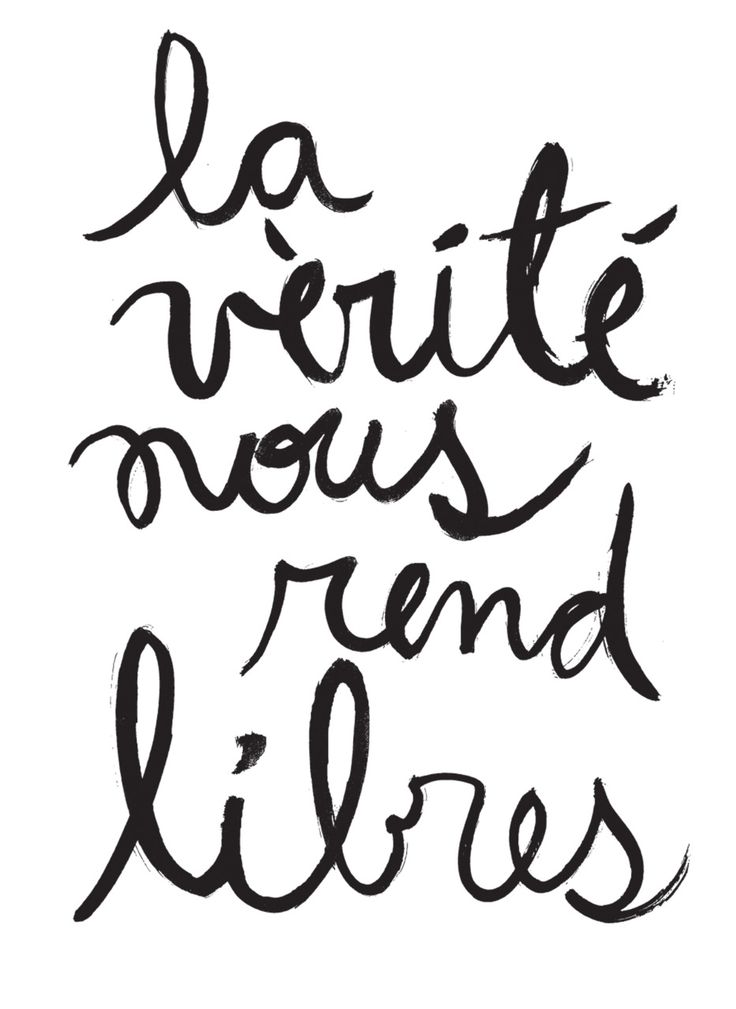 la
vèrité
nous
rend
libres